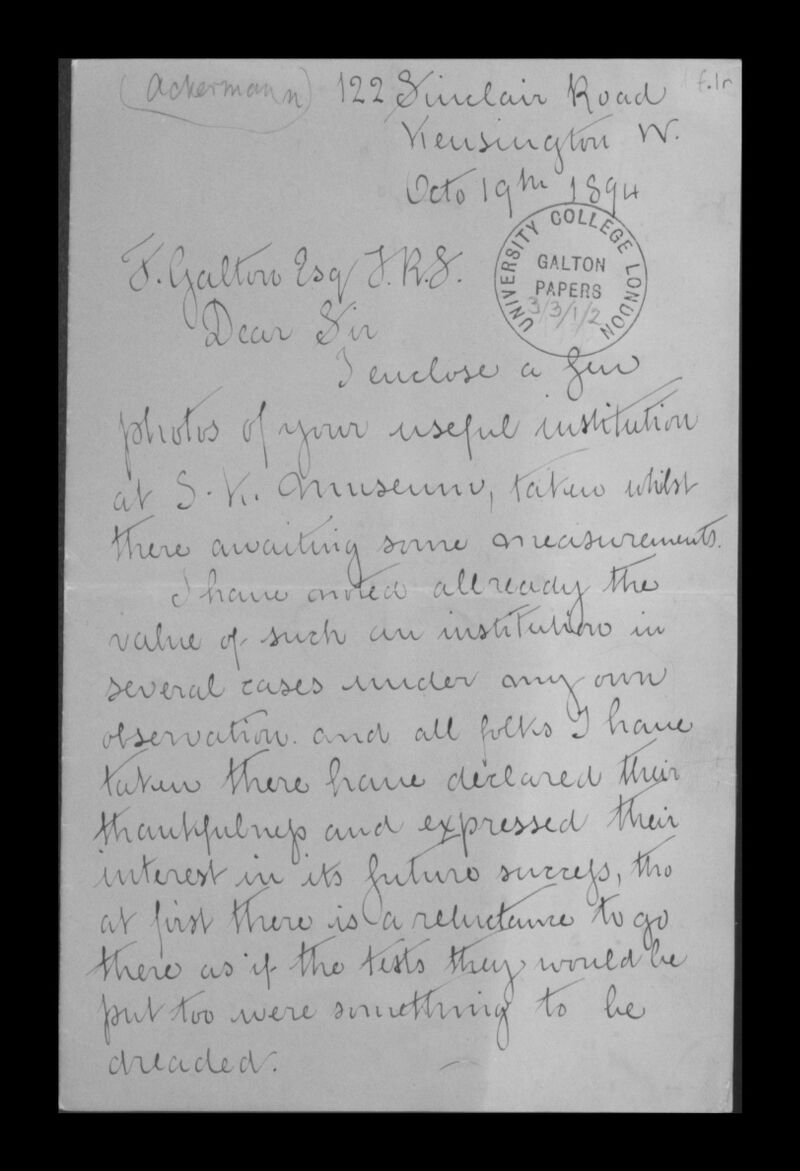 (Ackermann) 122 Sinclair Road f.1r
Kensington W.
Octo 19th 1894
UNIVERSITY COLLEGE LONDON
GALTON
PAPERS
3/3/1/2
F. Galton Esq F.R.S.
Dear Sir
I enclose a few
photos of your useful institution
at S. K. Museum, taken whilst
there awaiting some measurements.
I have noted allready the
value of such an institution in
several cases under my own
observation. and all folks I have
taken there have declared their
thankfulness and expressed their
interest in its future success, tho
at first there is a reluctance to go
there as if the tests they would be
put too were something to be
dreaded.